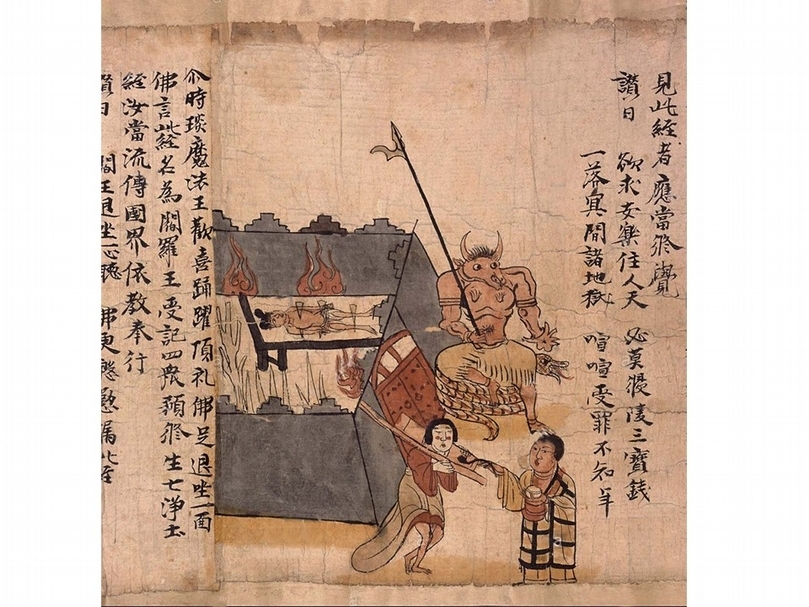 見此經者應當修覺
讚曰 欲求安樂住人天 必莫侵陵三寶錢
一落冥間諸地獄 喧喧受罪不知年
尒時琰魔法王歡喜踊躍頂礼佛足退坐一面
佛言此經名為閻羅王受記四衆預修生七淨土
經汝當流傳國界依教奉行
讚曰 閻王退坐一心聽 佛更慇懃囑此經